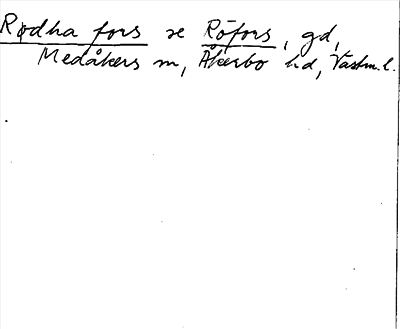 Rødha fors se Röfors, gd,
Medåkers sn, Åkerbo hd, Västm.l.